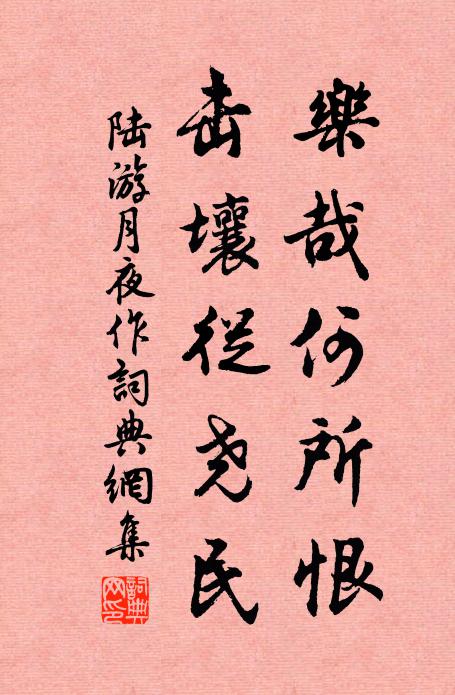 樂哉何所恨
击壤從尧民
陸游月夜作詞典網集
詞典网印